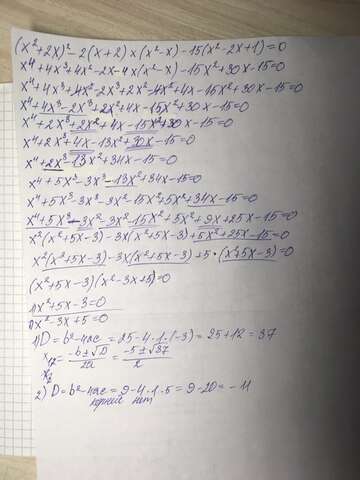 (x²+2x)²-2(x+2)×(x²-x)-15(x²-2x+1)=0
x⁴+4x³+4x²-2x-4x(x²-x)-15x²+30x-15=0
x⁴+4x³+4x²-2x³+2x²-4x²+4x-15x²+30x-15=0
x⁴+4x³-2x³+2x²+4x-15x²+30x-15=0
x⁴+2x³+2x²+4x-15x²+30x-15=0
x⁴+2x³+4x-13x²+30x-15=0
x⁴+2x³-13x²+34x-15=0
x⁴+5x³-3x³-13x²+34x-15=0
x⁴+5x³-3x³-3x²-15x²+5x²+34x-15=0
x⁴+5x³-3x²-3x³-15x²+5x²+9x+25x-15=0
x²(x²+5x-3)-3x(x²+5x-3)+5x²+25x-15=0
x²(x²+5x-3)-3x(x²+5x-3)+5·(x²+5x-3)=0
(x²+5x-3)(x²-3x+5)=0
1)x²+5x-3=0
2)x²-3x+5=0
1)D=b²-4ac=25-4·1·(-3)=25+12=37
x₁,₂=-b±√D/2a=-5±√37/2
2)D=b²-4ac=9-4·1·5=9-20=-11
корней нет